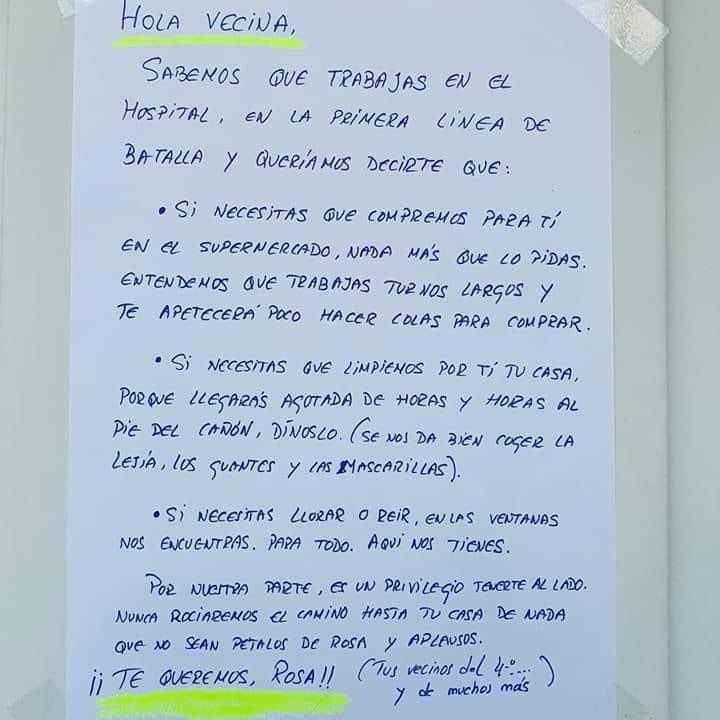 HOLA VECINA,
SABEMOS QUE TRABAJAS EN EL
HOSPITAL, EN LA PRIMERA LINEA DE
BATALLA Y QUERÍAMOS DECIRTE QUE:
• SI NECESITAS QUE COMPREMOS PARA TÍ
EN EL SUPERMERCADO, NADA MÁS QUE LO PIDAS.
ENTENDEMOS QUE TRABAJAS TURNOS LARGOS Y
TE APETECERÁ POCO HACER COLAS PARA COMPRAR.
• SI NECESITAS QUE LIMPIEMOS POR TÍ TU CASA,
PORQUE LLEGARÁS AGOTADA DE HORAS Y HORAS AL
PIE DEL CAÑÓN, DÍNOSLO. (SE NOS DA BIEN COGER LA
LEJÍA, LOS GUANTES Y LAS MASCARILLAS).
• SI NECESITAS LLORAR O REIR, EN LAS VENTANAS
NOS ENCUENTRAS. PARA TODO. AQUI NOS TIENES.
POR NUESTRA PARTE, ES UN PRIVILEGIO TENERTE AL LADO.
NUNCA ROCIAREMOS EL CAMINO HASTA TU CASA DE NADA
QUE NO SEAN PETALOS DE ROSA Y APLAUSOS.
¡¡ TE QUEREMOS, ROSA!! (Tus vecinos del 4º...
y de muchos más)